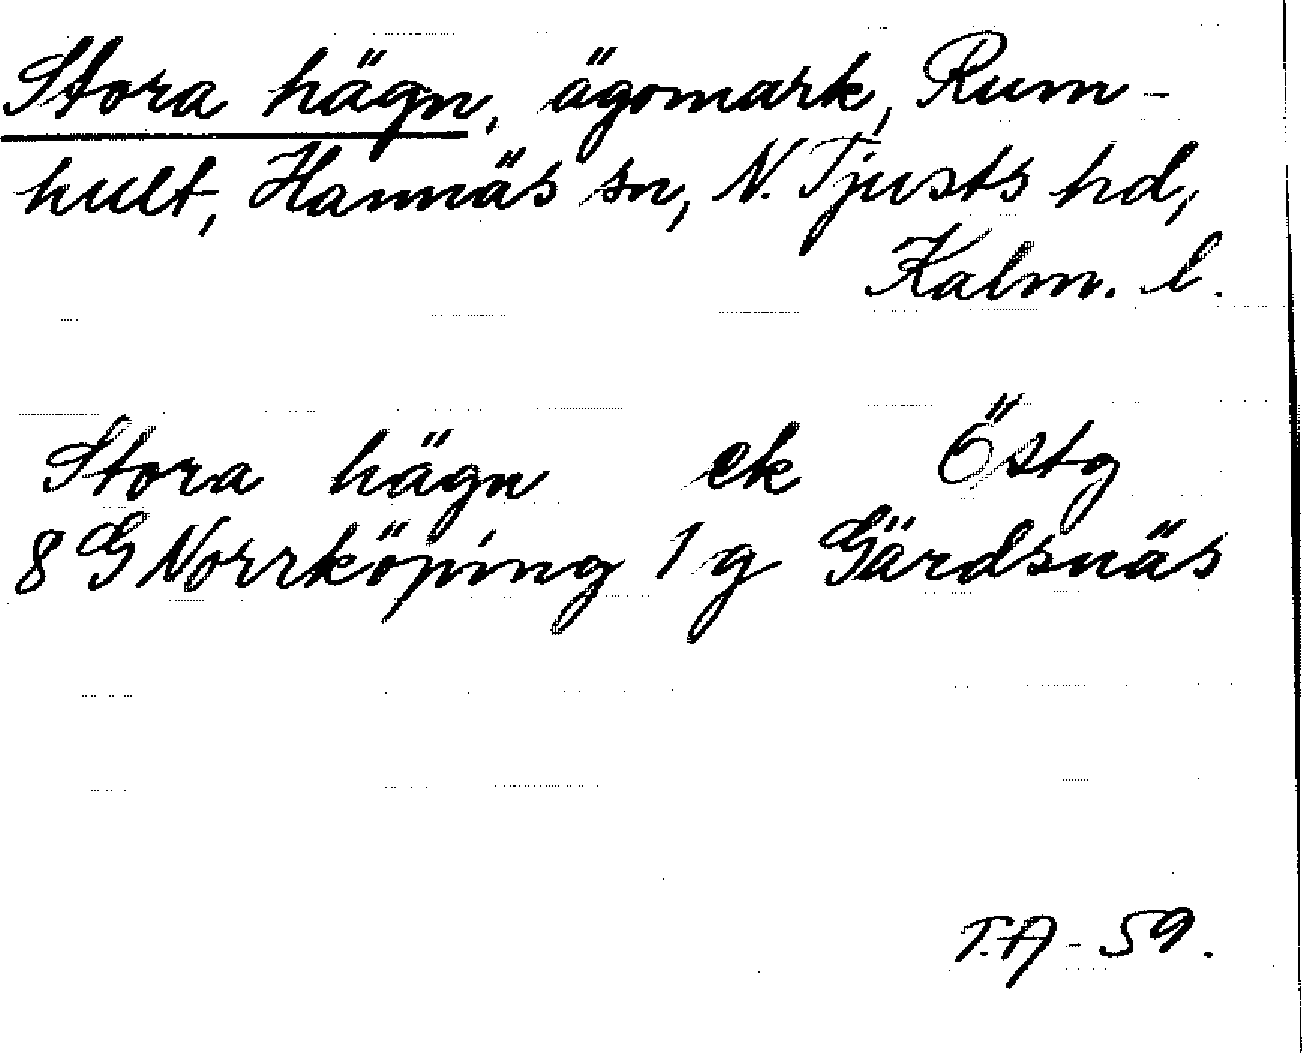 Stora hägn, ägomark, Rum-
hult, Hannäs sn, N. Tjusts hd,
Kalm. l.
Stora hägn ek Östg
8 G Norrköping 1 g Gärdsnäs
T.A - 59.